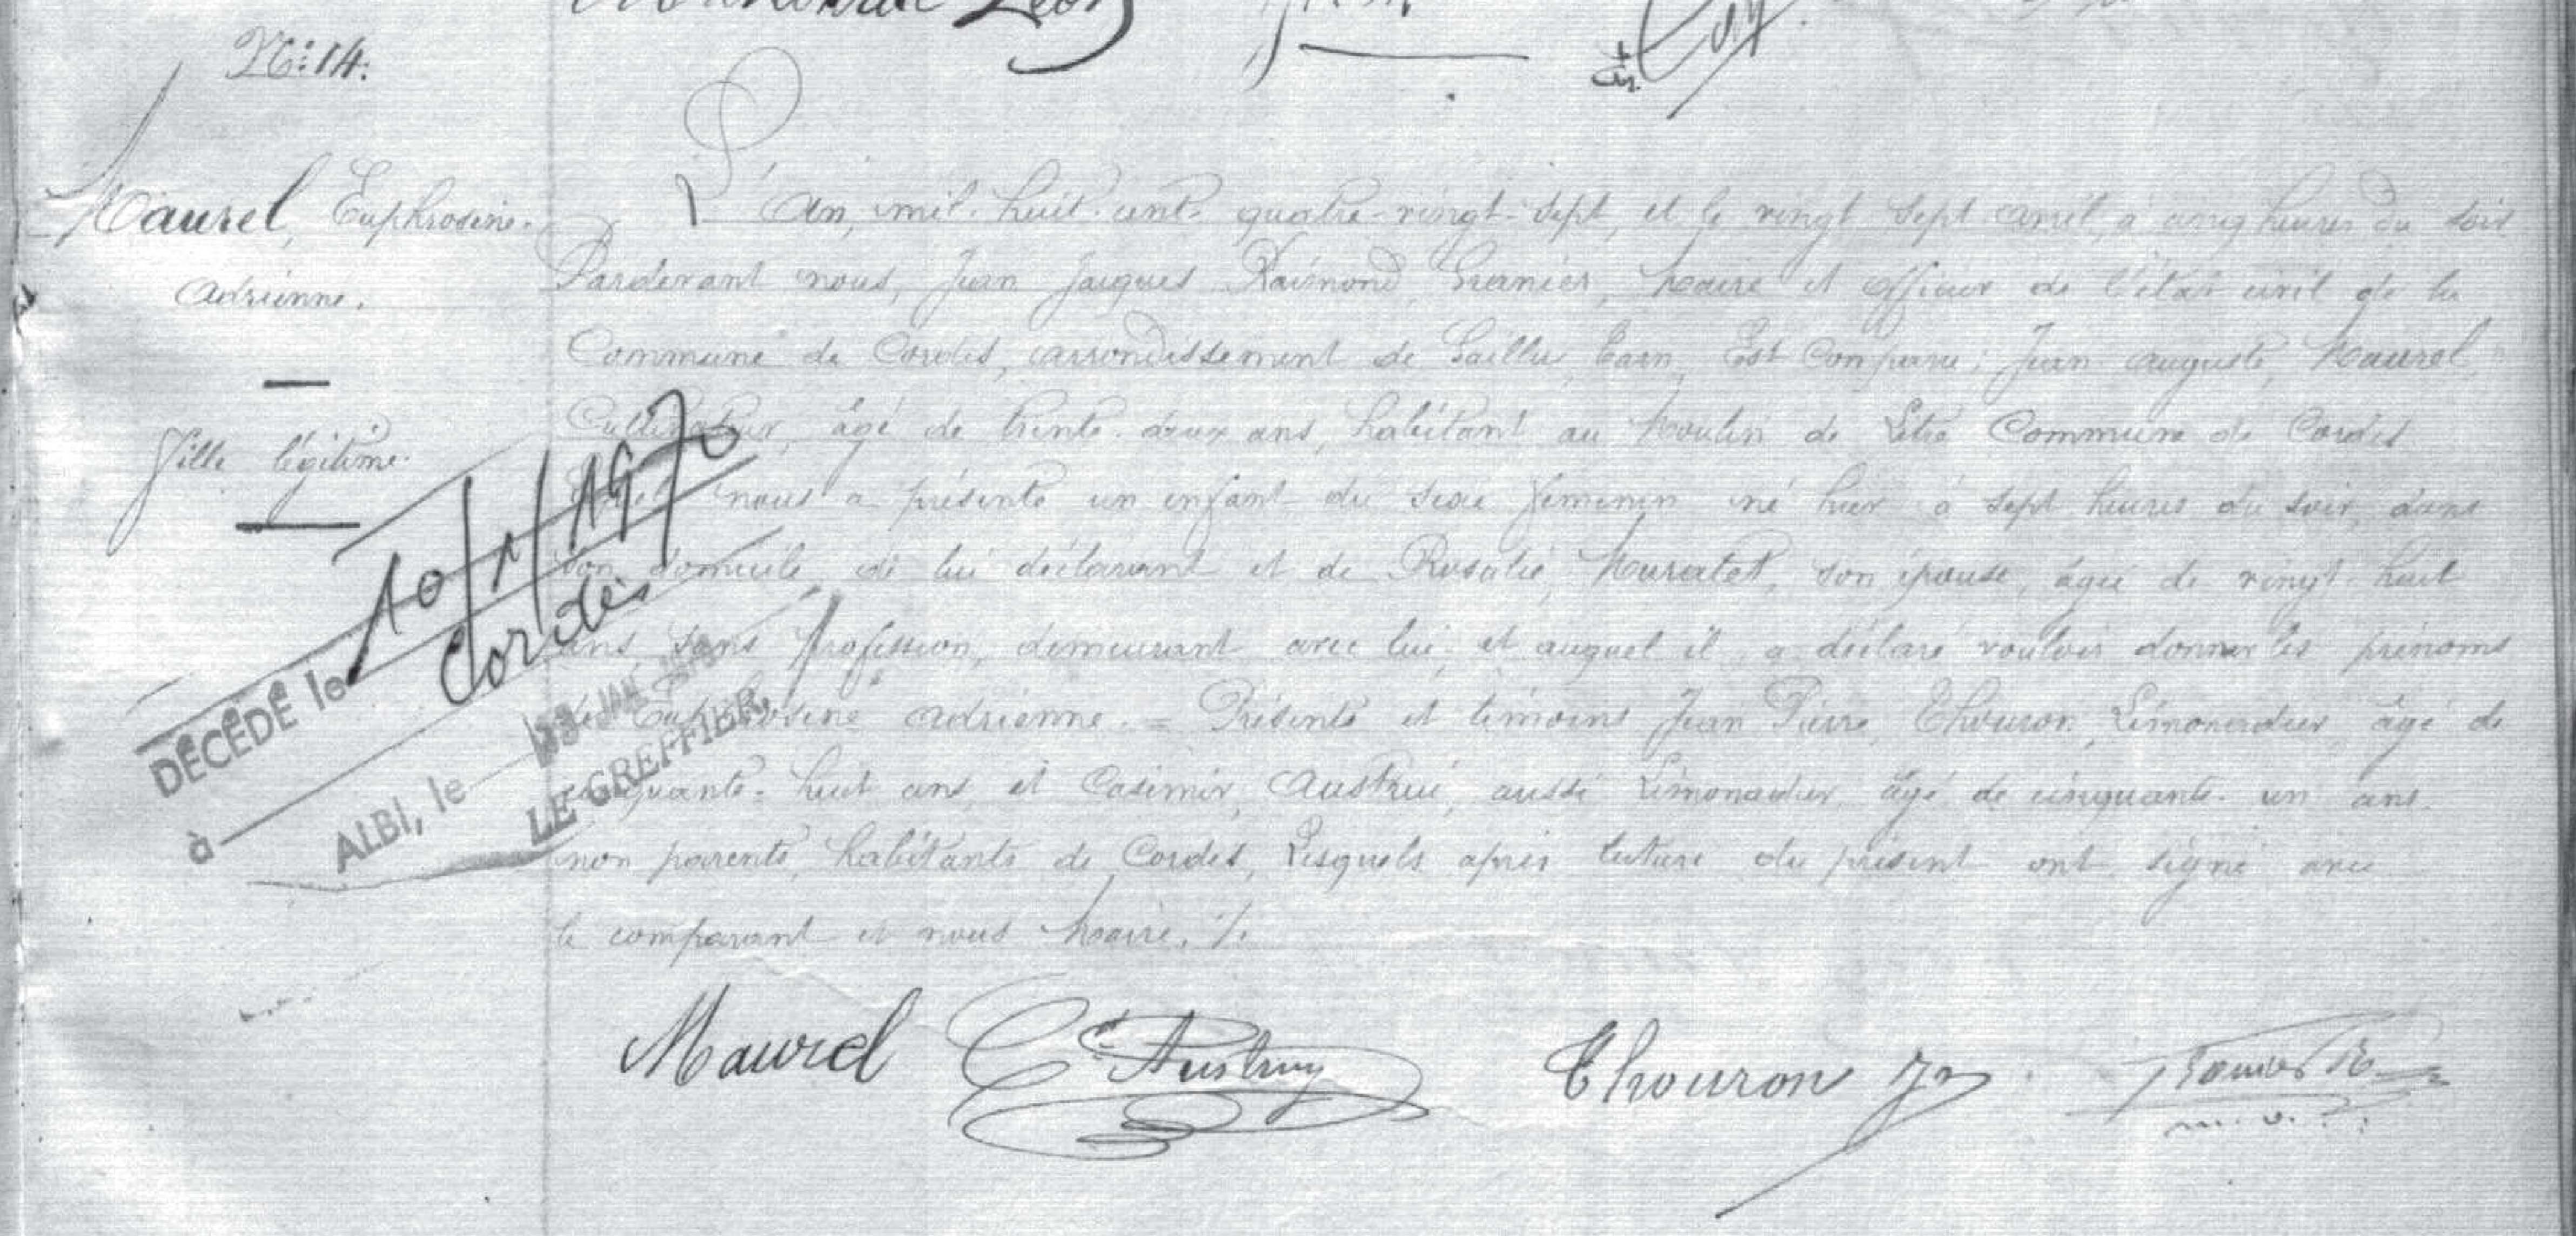 Léon
N° 14.
Maurel, Euphrosine-
Adrienne.
Fille légitime.
DÉCÉDÉ le 10/1/1970
à Cordes
ALBI, le JAN.
LE GREFFIER,
L'An, mil-huit-cent-quatre-vingt-sept, et le vingt sept avril, à cinq heures du soir
Pardevant nous, Jean Jacques Raimond, Granier, Maire et officier de l'état civil de la
Commune de Cordes, arrondissement de Gaillac, Tarn, Est Comparu, Jean Auguste, Maurel,
Cultivateur, âgé de trente-deux ans, habitant au Moulin de Commune de Cordes
nous a présenté un enfant du sexe féminin né hier à sept heures du soir, dans
son domicile, de lui déclarant et de Rosalie, Muratet, son épouse, âgée de vingt-huit
ans, sans profession, demeurant avec lui, et auquel il a déclaré vouloir donner les prénoms
de Euphrosine Adrienne. = Présents et témoins Jean Pierre, Thouron, Limonadier, âgé de
cinquante-huit ans, et Casimir, Austrui, aussi Limonadier, âgé de cinquante-un ans.
non parents, habitants de Cordes, Lesquels après lecture du présent ont signé avec
le comparant et nous Maire. ./.
Maurel Cr Austruy Thouron Jn